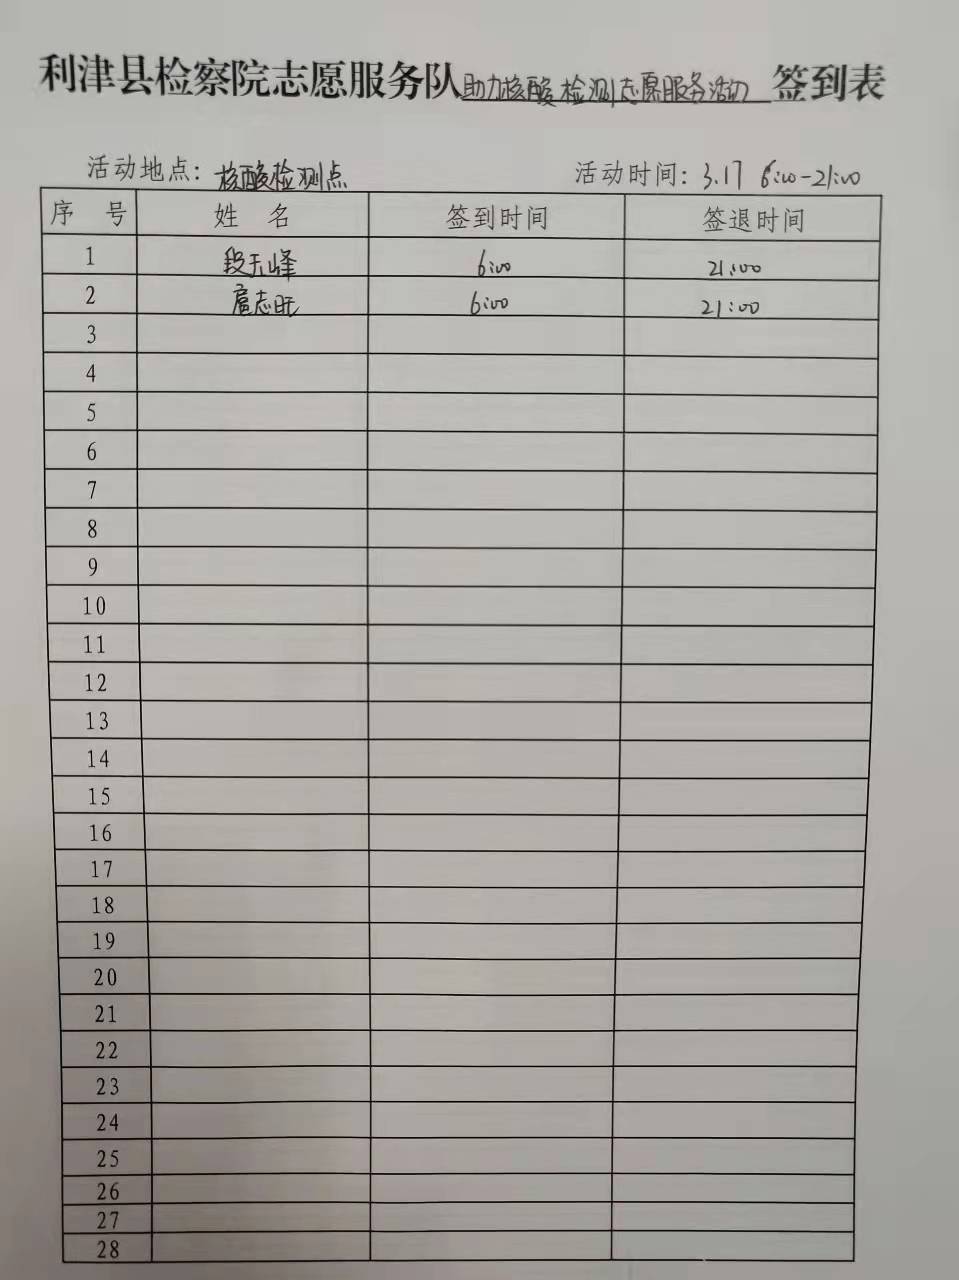 利津县检察院志愿服务队助力核酸检测志愿服务活动 签到表
活动地点：核酸检测点 活动时间：3.17 6:00-21:00
序 号 姓 名 签到时间 签退时间
1 段天峰 6:00 21:00
2 扈志旺 6:00 21:00
3
4
5
6
7
8
9
10
11
12
13
14
15
16
17
18
19
20
21
22
23
24
25
26
27
28